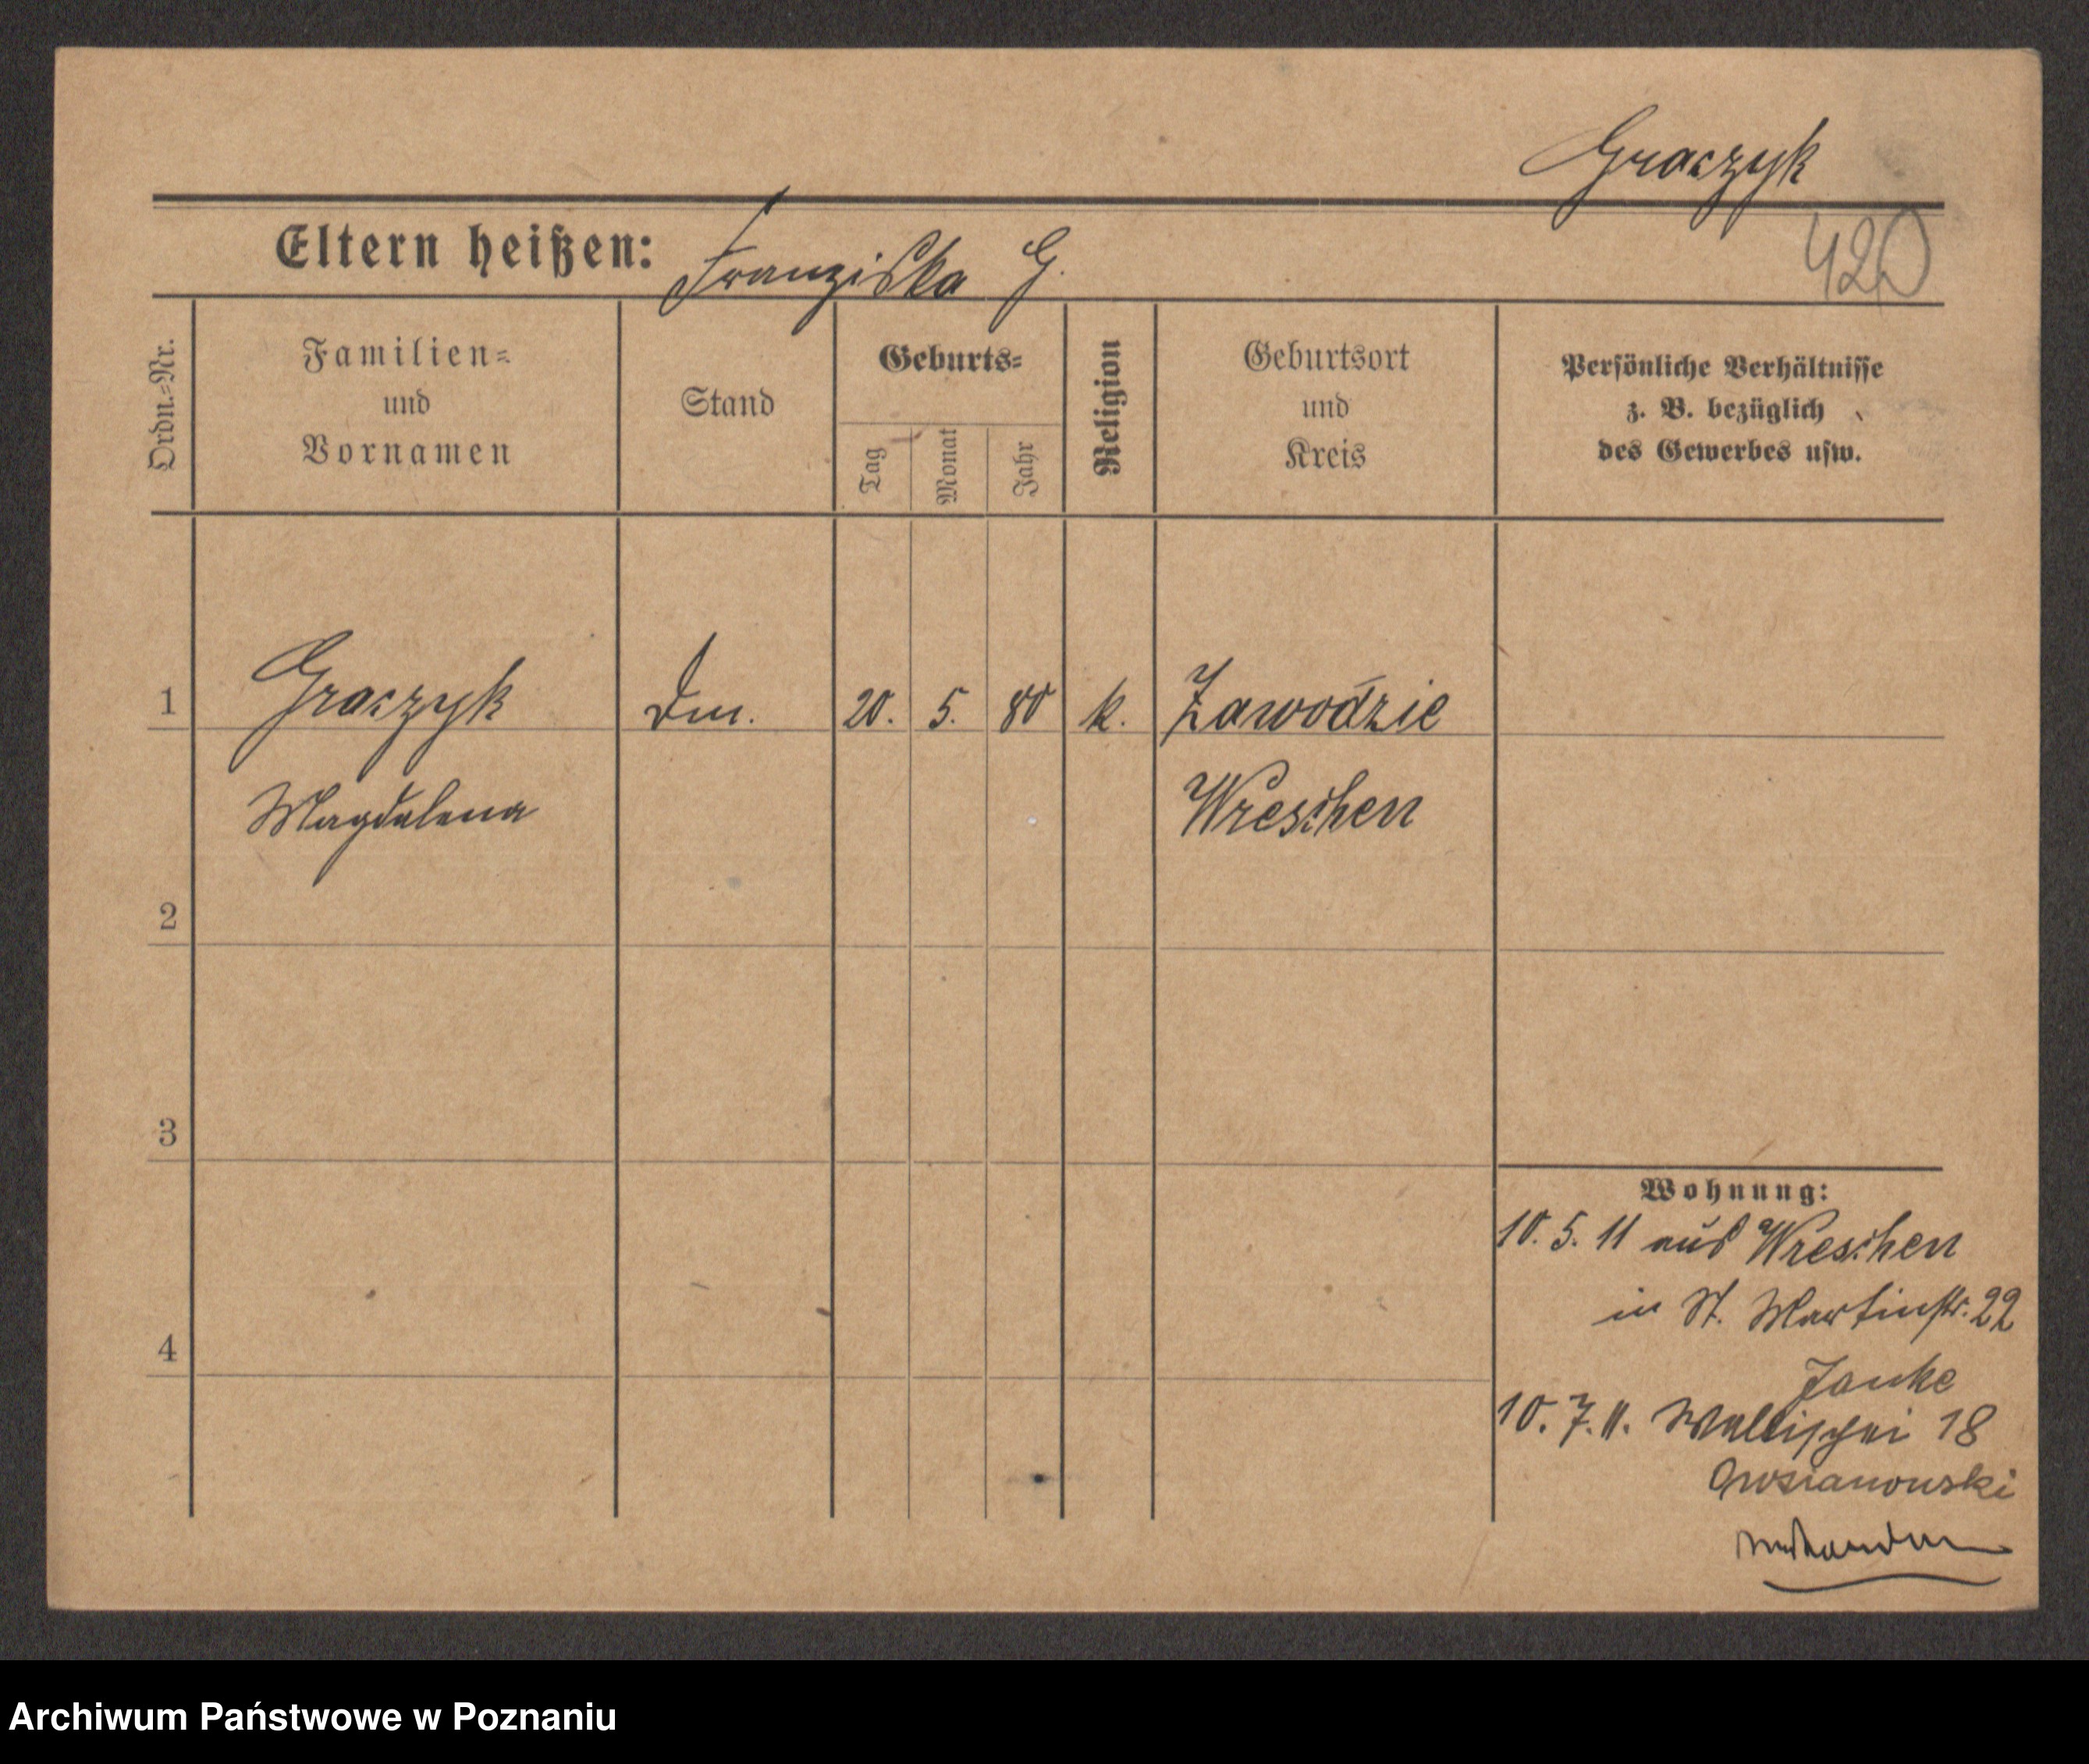 Graczyk
Eltern heißen: Franziska G.
420
Ordn.=Nr.
Familien=
und
Vornamen
Stand
Geburts=
Tag
Monat
Jahr
Religion
Geburtsort
und
Kreis
Persönliche Verhältnisse
z. B. bezüglich
des Gewerbes usw.
1 Graczyk 20. 5. 80 k. Zawodzie
Magdalena Wreschen
2
3
4
Wohnung:
10. 5. 11 aus Wreschen
in St. Martinstr. 22
Janke
10. 7. 11. Wallischei 18
Archiwum Państwowe w Poznaniu